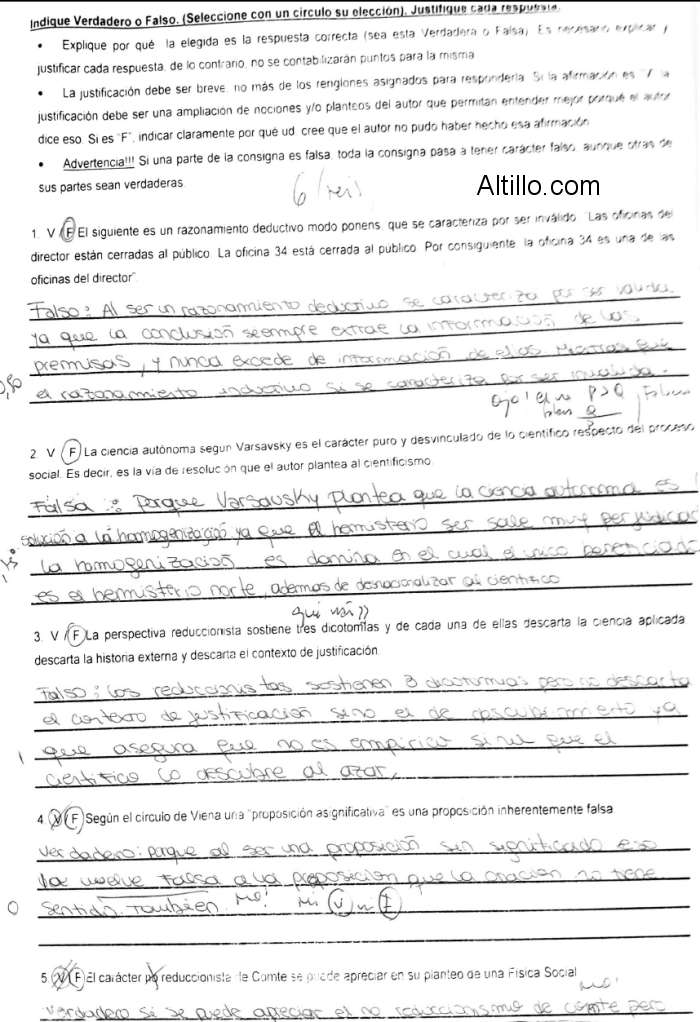 Indique Verdadero o Falso. (Seleccione con un circulo su elección). Justifique cada respuesta.
• Explique por qué la elegida es la respuesta correcta (sea esta Verdadera o Falsa). Es necesario explicar y
justificar cada respuesta, de lo contrario, no se contabilizarán puntos para la misma
• La justificación debe ser breve, no más de los renglones asignados para responderla. Si la afirmación es "V" la
justificación debe ser una ampliación de nociones y/o planteos del autor que permitan entender mejor porqué el autor
dice eso. Si es "F", indicar claramente por qué ud. cree que el autor no pudo haber hecho esa afirmación
• Advertencia!!! Si una parte de la consigna es falsa, toda la consigna pasa a tener carácter falso, aunque otras de
sus partes sean verdaderas
6 (seis)
Altillo.com
1. V / F El siguiente es un razonamiento deductivo modo ponens, que se caracteriza por ser inválido. "Las oficinas del
director están cerradas al público. La oficina 34 está cerrada al público. Por consiguiente, la oficina 34 es una de las
oficinas del director".
Falso: Al ser un razonamiento deductivo se caracteriza por ser valida
ya que la conclusión seempre extrae la información de las
premisas, y nunca excede de información de ellas
el razonamiento inductivo si se caracteriza por ser invalida.
0,50
ojo! el P>Q
2. V / F La ciencia autónoma segun Varsavsky es el carácter puro y desvinculado de lo científico respecto del proceso
social. Es decir, es la vía de resolución que el autor plantea al cientificismo.
Falsa: Porque Varsavsky plantea que la ciencia autonoma es
solución a la homogenización ya que el hemisferio sur sale muy
la homogenización es domina en el cual el unico
es el hemisferio norte, ademas de desnacionalizar al cientifico
3. V / F La perspectiva reduccionista sostiene tres dicotomías y de cada una de ellas descarta la ciencia aplicada
descarta la historia externa y descarta el contexto de justificación
Falso: los reduccionistas sostienen 3 dicotomias pero no descarta
el contexto de justificación sino el de descubrimiento ya
que asegura que no es empirico sino que el
cientifico lo descubre al azar.
1
4 V F Según el circulo de Viena una "proposición asignificativa" es una proposición inherentemente falsa
Verdadero: porque al ser una proposición sin significado eso
la vuelve falsa a la proposicion que la oración no tiene
sentido. También. No! Ni V ni F
0
5 V F El carácter no reduccionista de Comte se puede apreciar en su planteo de una Física Social
No!
Verdadero si se puede apreciar el no reduccionismo de comte pero